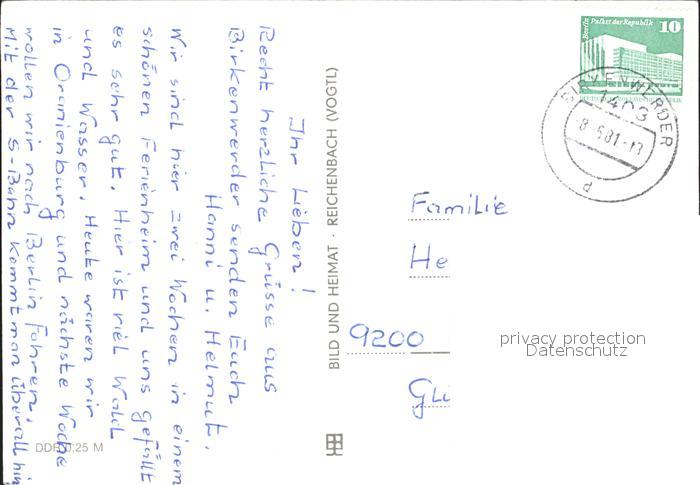 Ihr Lieben!
Recht herzliche Grüsse aus
Birkenwerder senden Euch
Hanni u. Helmut.
Wir sind hier zwei Wochen in einem
schönen Ferienheim und uns gefällt
es sehr gut. Hier ist viel Wald
und Wasser. Heute waren wir
in Oranienburg und nächste Woche
wollen wir nach Berlin fahren.
Mit der S-Bahn kommt man überall hin
DDR 0,25 M
BILD UND HEIMAT · REICHENBACH (VOGTL)
Berlin Palast der Republik
10
BIRKENWERDER
1403
-8.-6.81-
d
Familie
He
9200
Gli
privacy protection
Datenschutz